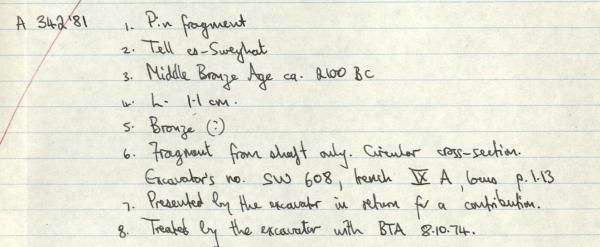 A 342'81 1. Pin fragment
2. Tell es-Sweyhat
3. Middle Bronze Age ca. 2100 BC
4. L. 1.1 cm.
5. Bronze (?)
6. Fragment from shaft only. Circular cross-section.
Excavator's no. SW 608, trench IX A, locus p. 1.13
7. Presented by the excavator in return for a contribution.
8. Treated by the excavator with BTA 8.10.74.